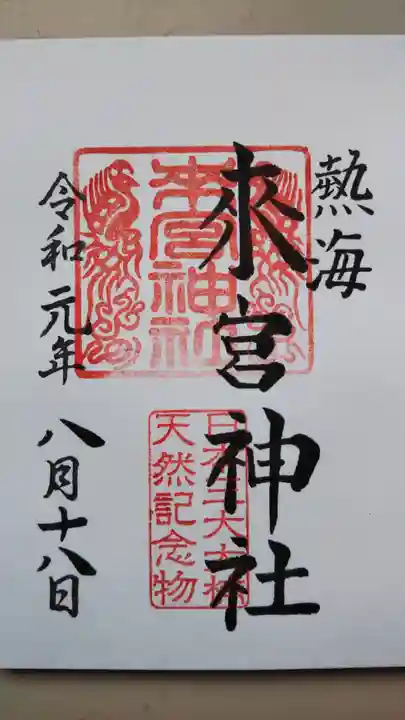 熱海
來宮神社
來宮神社
日本三大大楠
天然記念物
令和元年 八月十八日